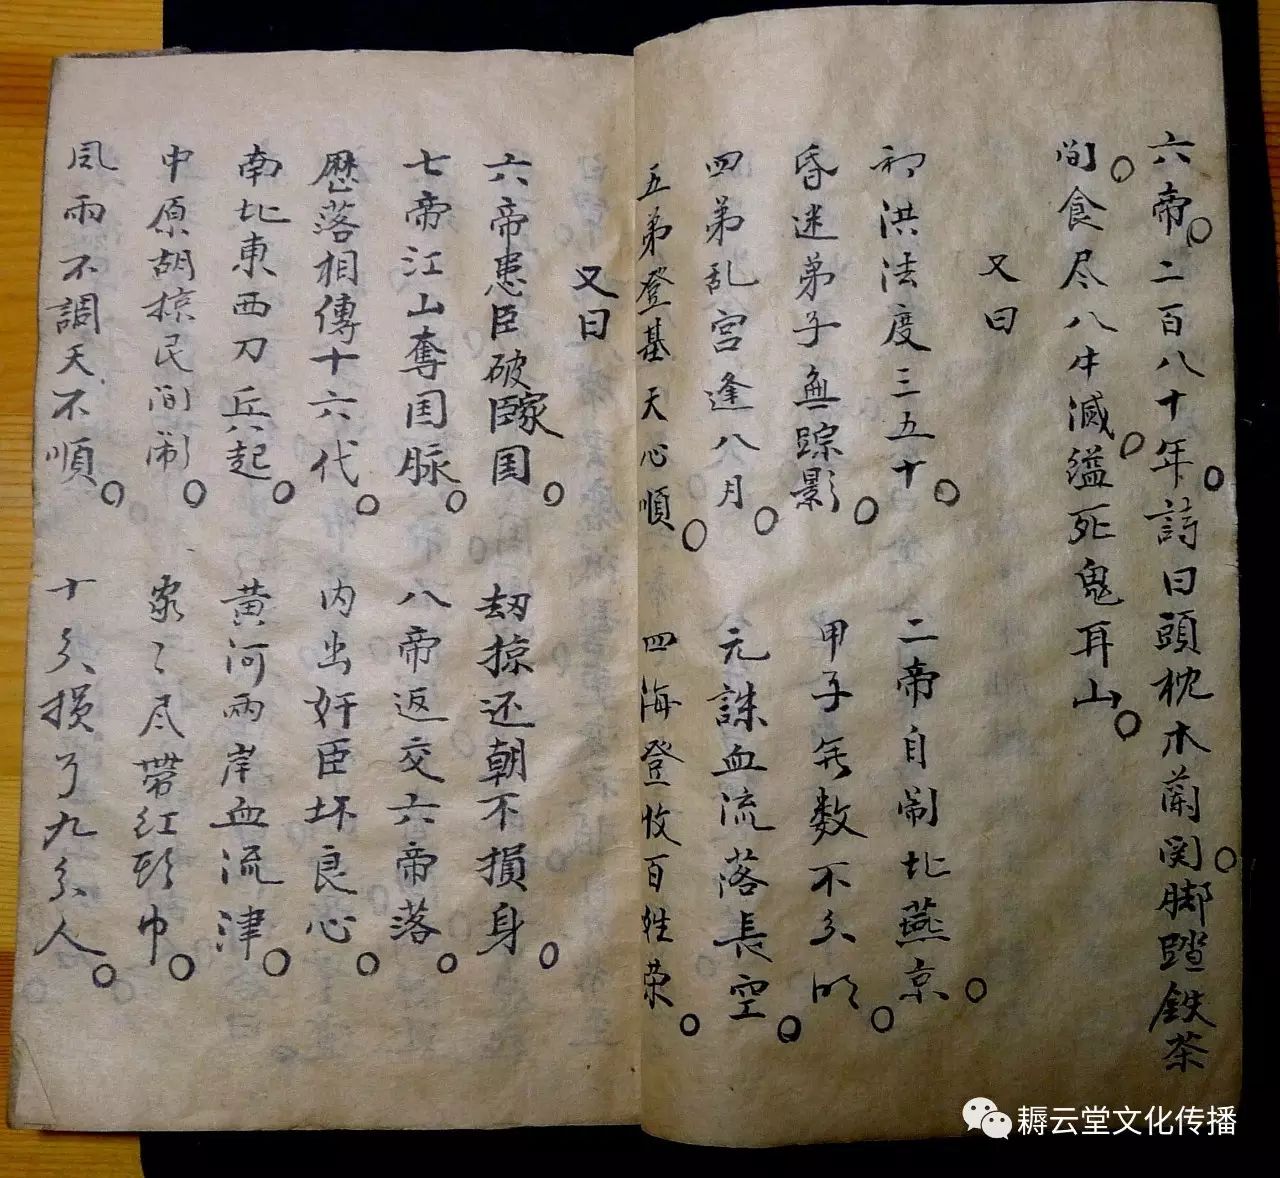 六帝。二百八十年。詩曰頭枕木蘭関。脚踏鉄茶
间。食尽八牛滅。縊死鬼耳山。
又曰
初洪法度三五十。二帝自闹北燕京。
昏迷弟子無踪影。甲子無数不分明。
四弟乱宫逢八月。元誅血流落長空。
五弟登基天心順。四海登收百姓荣。
又曰
六帝患臣破家国。劫掠还朝不損身。
七帝江山奪国脉。八帝返交六帝落。
歴落相傳十六代。内出奸臣坏良心。
南北東西刀兵起。黄河兩岸血流津。
中原胡掠民间闹。家〻尽带红頭巾。
風雨不調天不順。十分损了九分人。
耨云堂文化传播